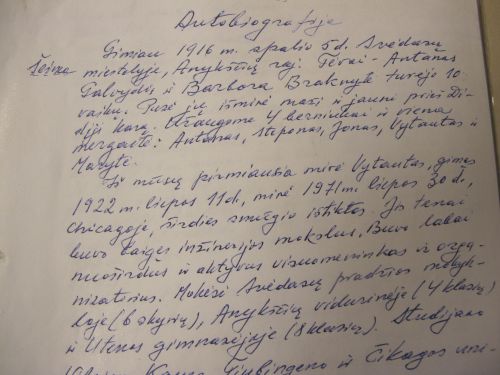 Autobiografije
Gimiau 1916 m. spalio 5 d. Svėdasų
Šeima miestelyje, Anykščių raj. Tėvai - Antanas
Galvydis ir Barbora Braknytė turėjo 10
vaikų. Pusė jų išmirė maži ir jauni prieš Di-
dįjį karą. Užaugome 4 berniukai ir viena
mergaitė: Antanas, Steponas, Jonas, Vytautas ir
Marytė.
Iš mūsų pirmiausia mirė Vytautas, gimęs
1922 m. liepos 11 d., mirė 1971 m. liepos 30 d.,
Chicagoje, širdies smūgio ištiktas. Jis tenai
buvo baigęs inžinerijos mokslus. Buvo labai
nuoširdus ir aktyvus visuomenininkas ir orga-
nizatorius. Mokėsi Svėdasų pradžios mokyk-
loje (6 skyrių), Anykščių vidurinėje (4 klasių)
ir Utenos gimnazijoje (8 klasių). Studijavo
Tiubingeno ir Čikagos uni-